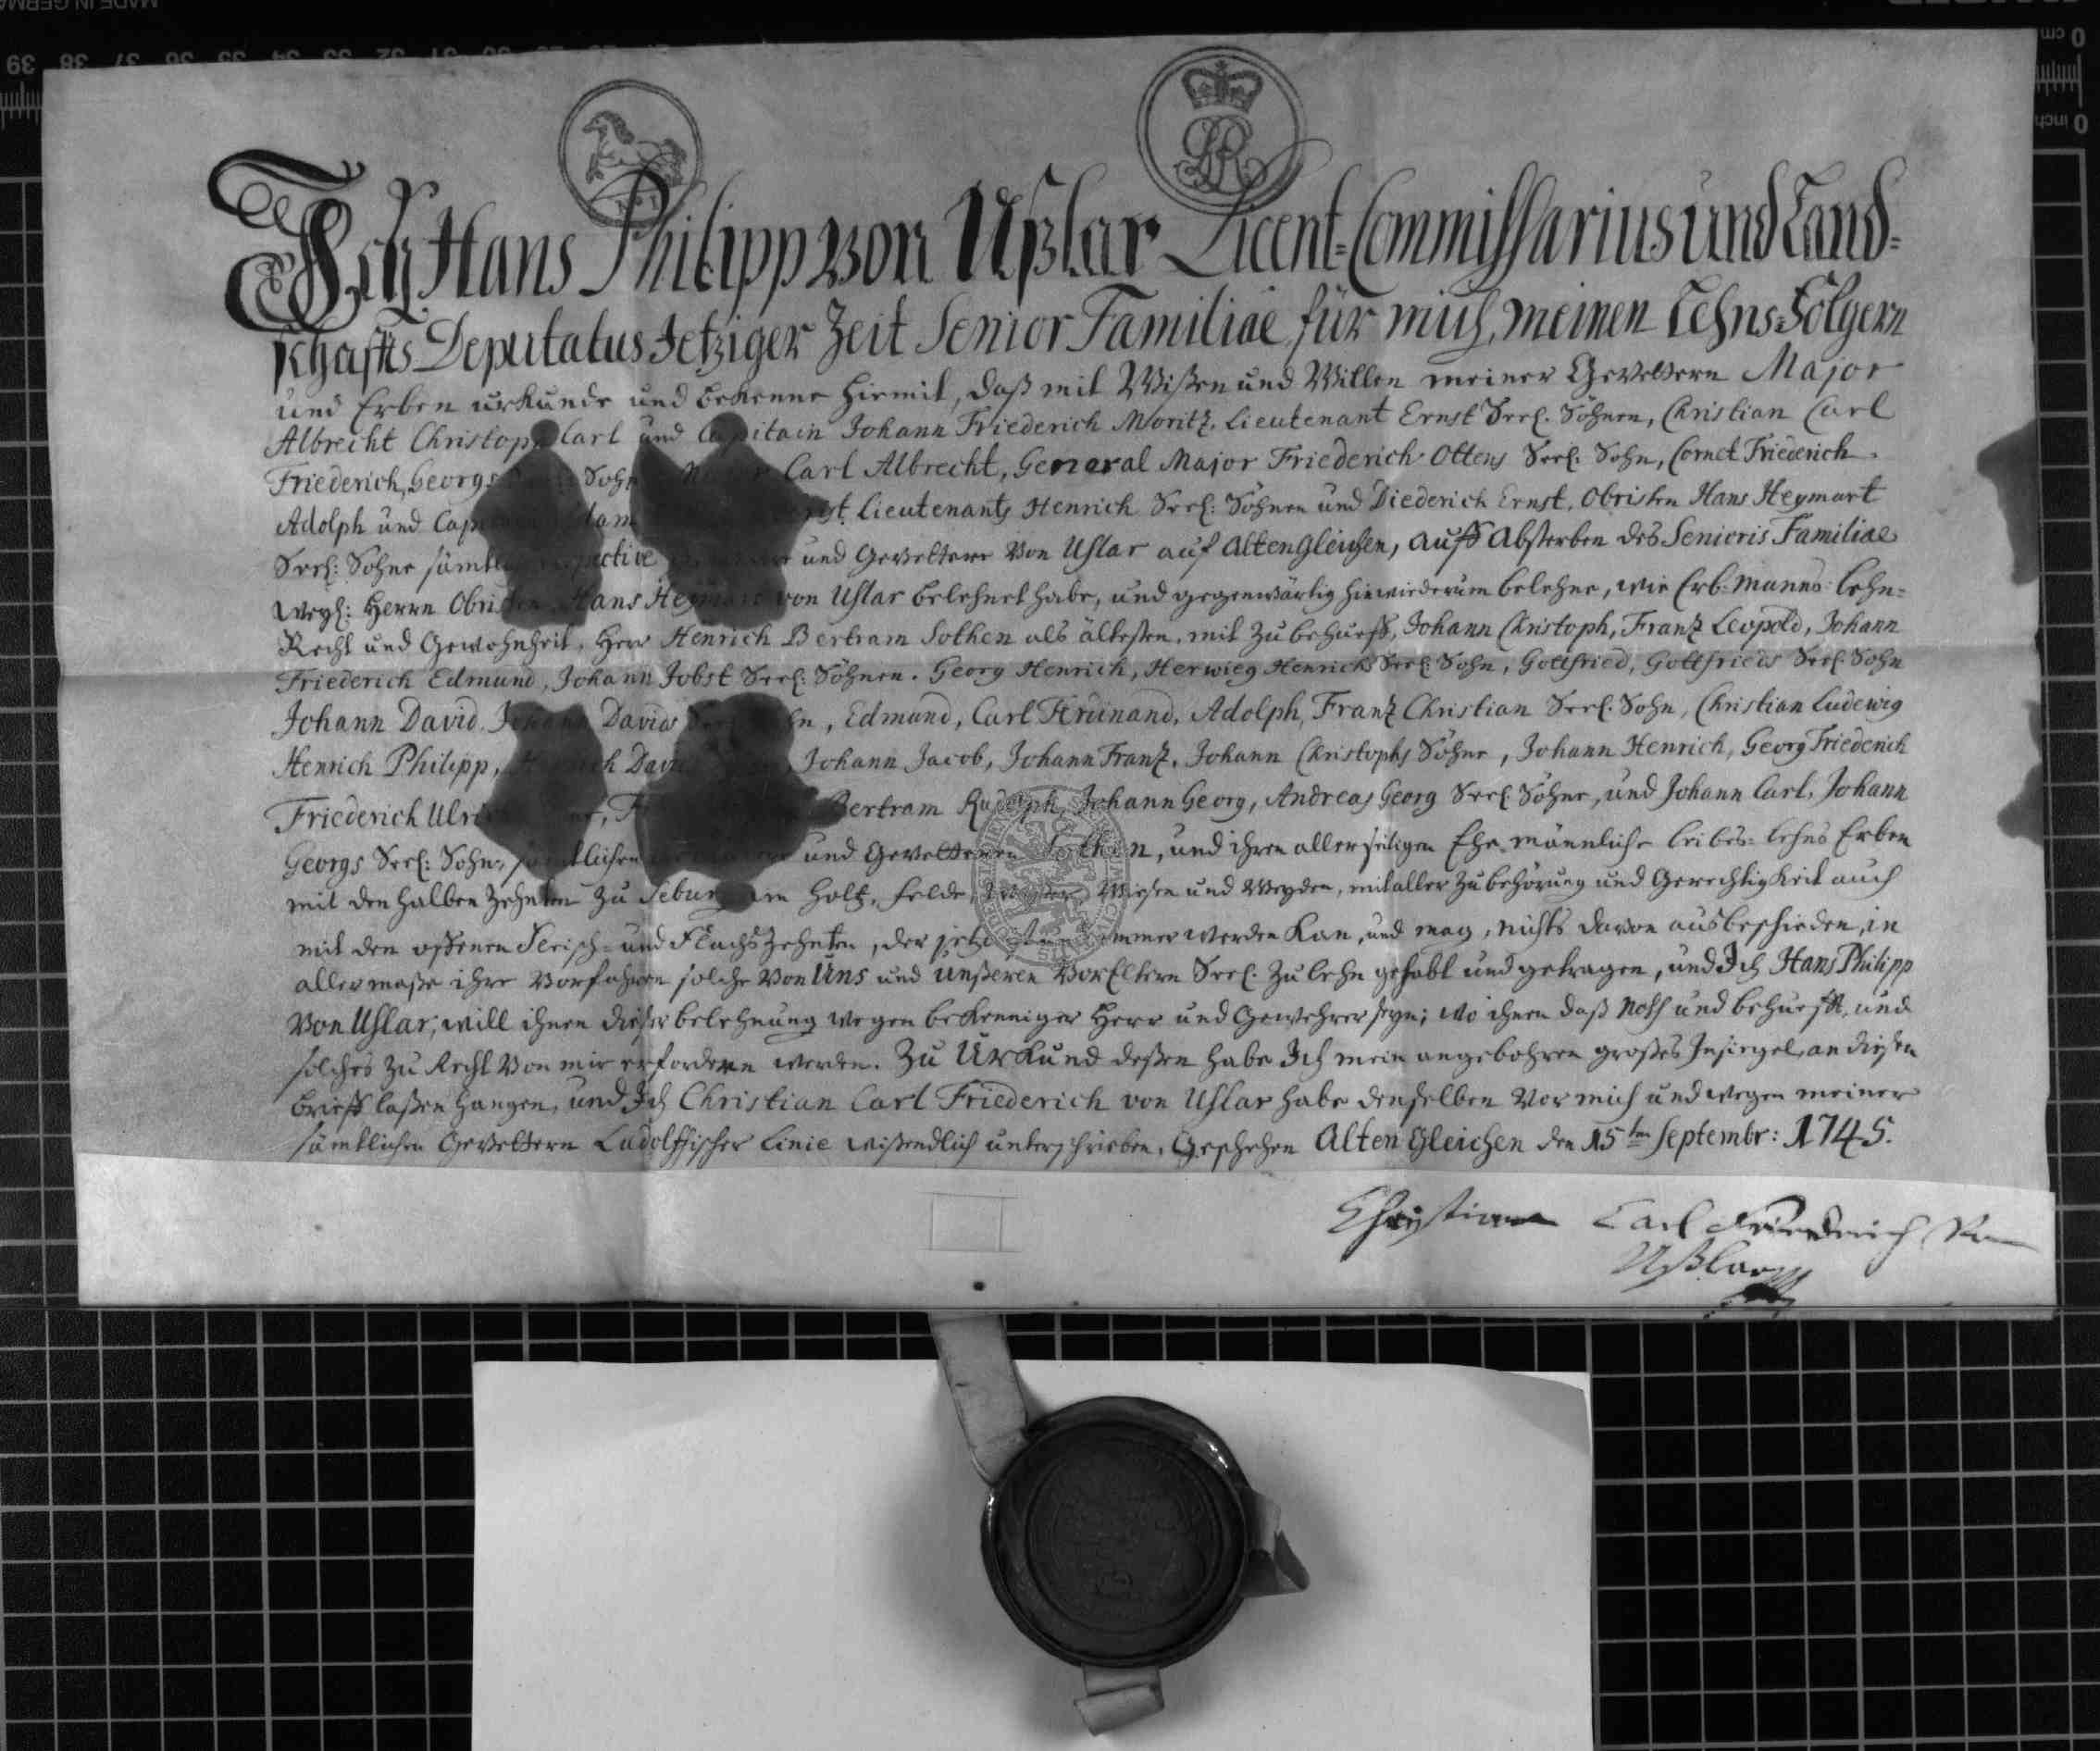 Ich Hans Philipp von Ußlar Licent-Commissarius und Land-
schaffts Deputatus Jetziger Zeit Senior Familiae, für mich, meinen Lehns-Folgern
und Erben urkunde und bekenne hiemit, daß mit Wißen und Willen meiner Gevettern Major
Albrecht Christoph Carl und Capitain Johann Friederich Moritz, Lieutenant Ernst Seel. Söhnen, Christian Carl
Friederich, Georgs Sohn Carl Albrecht, General Major Friederich Ottens Seel: Sohn, Cornet Friederich
Adolph und Lieutenants Henrich Seel: Söhnen und Diederich Ernst, Obristen Hans Heymart
Seel: Sohne und Gevettere von Uslar auf Altengleichen, auff Absterben des Senioris Familiae
Weyl: Herrn Obristen Hans Heymart von Uslar belehnet habe, und gegenwärtig hinwiederum belehne, wie Erb-Manns-Lehn-
Recht und Gewohnheit, Herr Henrich Bertram Sothen als ältesten, mit zu behueff, Johann Christoph, Frantz Leopold, Johann
Friederich Edmund, Johann Jobst Seel: Söhnen. Georg Henrich, Herwieg Henrichs Seel: Sohn, Gottfried, Gottfrieds Seel: Sohn
Johann David, Johann Davids Seel: Sohn, Edmund, Carl Ferdinand, Adolph, Frantz Christian Seel. Sohn, Christian Ludewig
Henrich Philipp, Johann Jacob, Johann Frantz, Johann Christophs Söhne, Johann Henrich, Georg Friederich
Friederich Bertram Rudolph, Johann Georg, Andreas Georg Seel: Söhne, und Johann Carl, Johann
Georgs Seel: Sohn, sämtlichen und Gevetteren Sothen, und ihren allerseitigen Ehe männliche leibes-lehns Erben
mit den halben Zehnten zu Seburg am Holtz, Felde, Wiesen und Weyden, mit aller Zubehörung und Gerechtigkeit auch
mit den offenen Fleisch- und Flachs Zehnten, der jetzt ist und immer werden kan, und mag, nichts davon ausbeschieden, in
allermaße ihre Vorfahren solche von Uns und Unßeren VorEltern Seel. zu lehn gehabt und getragen, und Ich Hans Philipp
von Uslar, will ihnen dießer belehnung wegen bekenniger Herr und Gewehrer seyn; wo ihnen daß Noth und behueff, und
solches zu Recht von mir erfordern werden. Zu Urkund deßen habe Ich mein angebohren großes Insiegel, an diesen
brieff laßen hangen, und Ich Christian Carl Friederich von Uslar habe denselben vor mich und wegen meiner
sämtlichen Gevettern Ludolffischer Linie wißendlich unterschrieben, Geschehen Alten Gleichen den 15ten Septembr: 1745.
Christian Carl Friederich von
Ußlar